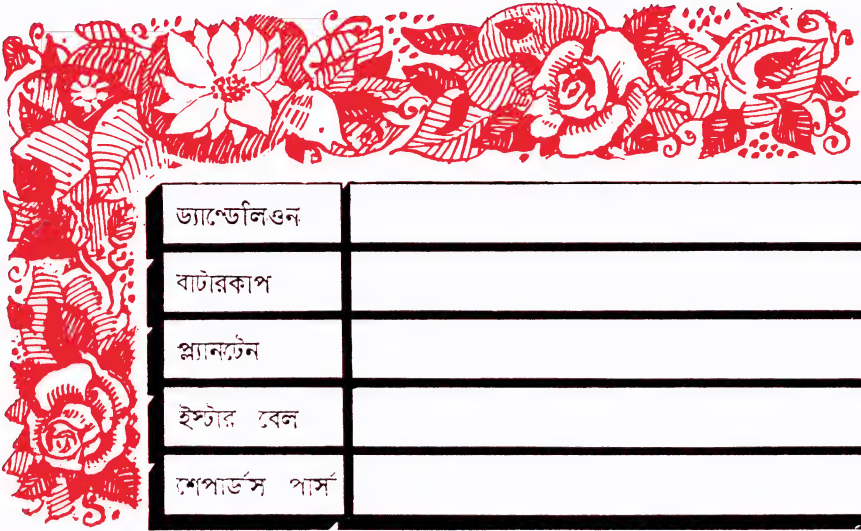 ড্যান্ডেলিওন
বাটারকাপ
প্ল্যানটেন
ইস্টার বেল
শেপার্ডস পার্স